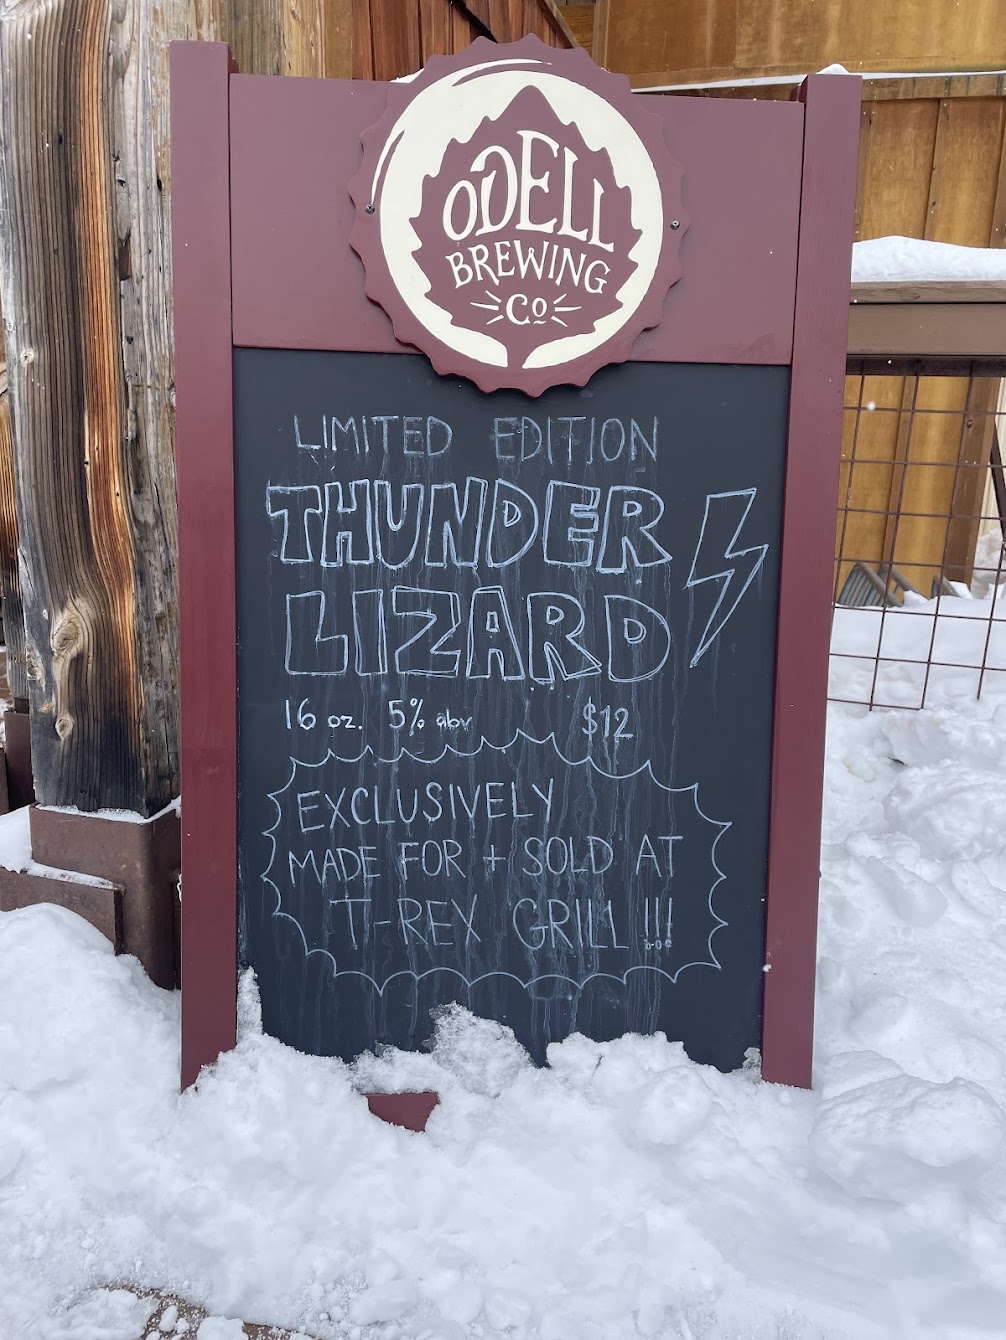 ODELL
BREWING
Co
LIMITED EDITION
THUNDER
LIZARD
16 oz. 5% abv $12
EXCLUSIVELY
MADE FOR + SOLD AT
T-REX GRILL !!!